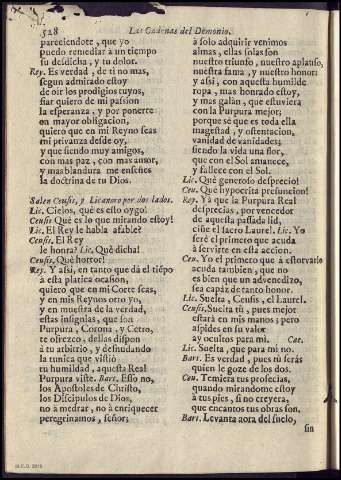 528
Las Cadenas del Demonio.
pareciendote, que yo
puedo remediar à un tiempo
su desdicha, y tu dolor.
Rey. Es verdad, de ti no mas,
segun admirado estoy
de oir los prodigios tuyos,
fiar quiero de mi passion
la esperança, y por ponerte
en mayor obligacion,
quiero que en mi Reyno seas
mi privanza desde oy,
y que siendo muy amigos,
con mas paz, con mas amor,
y mas blandura me enseñes
la doctrina de tu Dios.
Salen Ceusis, y Licanoro por dos lados.
Lic. Cielos, què es esto que oygo!
Ceusis Què es lo que mirando estoy!
Lic. El Rey le habla afable?
Ceusis. El Rey
le honra? Lic. Què dicha!
Ceusis. Què horror!
Rey. Y assi, en tanto que dà el tiẽpo
à esta platica ocasion,
quiero que en mi Corte seas,
y en mis Reynos otro yo,
y en muestra de la verdad,
estas insignias, que son
Purpura, Corona, y Cetro,
te ofrezco, dellas dispon
à tu arbitrio, y desnudando
la tunica que vistiò
tu humildad, aquesta Real
Purpura viste. Bart. Esso no,
los Apostoles de Christo,
los Discipulos de Dios,
no à medrar, no à enriquecer
peregrinamos, señor,
à solo adquirir venimos
almas, ellas solas son
nuestro triunfo, nuestro aplauso,
nuestra fama, y nuestro honor:
y assi, con aquesta humilde
ropa, mas honrado estoy,
y mas galàn, que estuviera
con la Purpura mejor;
porque sè que es toda ella
magestad, y ostentacion,
vanidad de vanidades;
siendo la vida una flor,
que con el Sol amanece,
y fallece con el Sol.
Lic. Què generoso desprecio!
Ceu. Què hypocrita presuncion!
Rey. Yà que la Purpura Real
desprecias, por vencedor
de aquesta passada lid,
ciñe el sacro Laurel. Lic. Yo
serè el primero que acuda
à servirte en esta accion.
Ceu. Yo el primero que à estorvarlo
acuda tambien, que no
es bien que un advenedizo,
sea capàz de tanto honor.
Lic. Suelta, Ceusis, el Laurel.
Ceusis. Suelta tù, pues mejor
estarà en mis manos; pero
aspides en su valor
ay ocultos para mi. Cae.
Lic. Suelta, que para mi no.
Bart. Es verdad, pues tù seràs
quien le goze de los dos.
Ceu. Temiera tus profecias,
quando mirandome estoy
à tus pies, si no creyera,
que encantos tus obras son.
Bart. Levanta aora del suelo,
sin